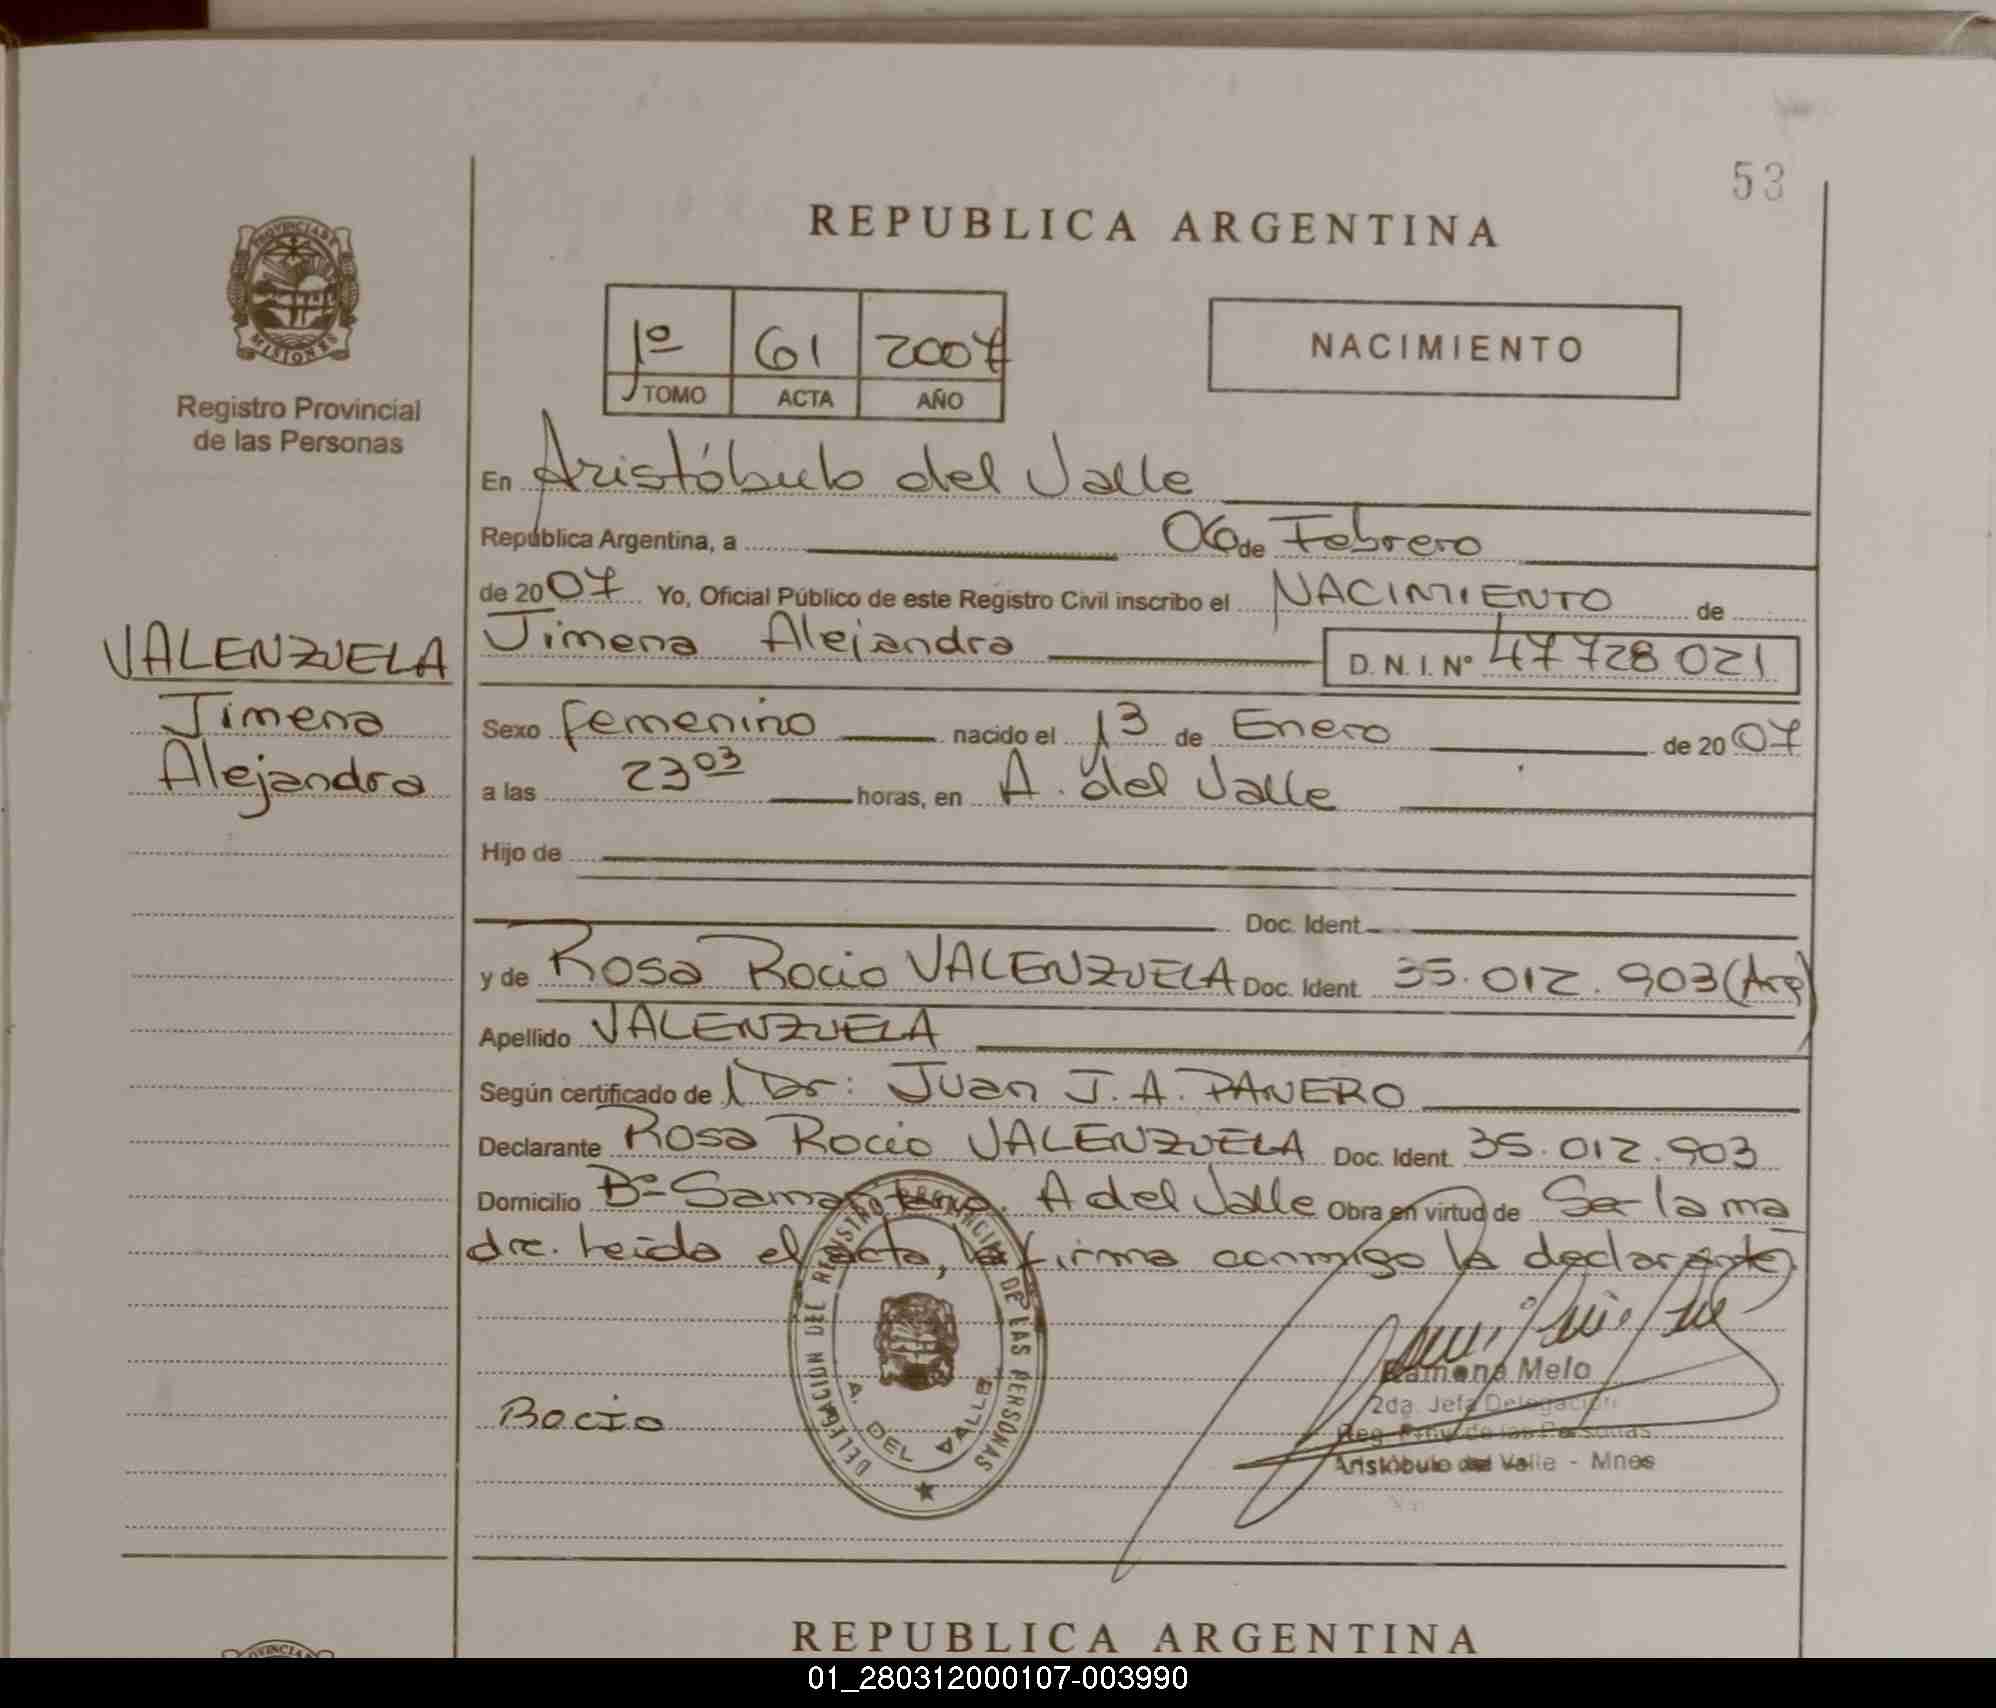 53
REPUBLICA ARGENTINA
PROVINCIA DE
MISIONES
Registro Provincial
de las Personas
1º 61 2007
TOMO ACTA AÑO
NACIMIENTO
En Aristóbulo del Valle
República Argentina, a 06 de Febrero
de 2007 Yo, Oficial Público de este Registro Civil inscribo el NACIMIENTO de
Jimena Alejandra D. N. I. Nº 47728021
VALENZUELA
Jimena
Alejandra
Sexo femenino nacido el 13 de Enero de 2007
a las 23 03 horas, en A. del Valle
Hijo de
Doc. Ident.
y de Rosa Rocio VALENZUELA Doc. Ident. 35.012.903 (Arg)
Apellido VALENZUELA
Según certificado de l Dr: Juan J. A. PANERO
Declarante Rosa Rocio VALENZUELA Doc. Ident. 35.012.903
Domicilio Bº Samaritano. A del Valle Obra en virtud de Ser la ma
dre. Leida el acta, la firma conmigo la declarante
DELEGACION DEL REGISTRO PROVINCIAL DE LAS PERSONAS
A. DEL VALLE
Rocio
Ramona Melo
2da. Jefa Delegación
Reg. Prov. de las Personas
Aristóbulo del Valle - Mnes
REPUBLICA ARGENTINA
01_280312000107-003990